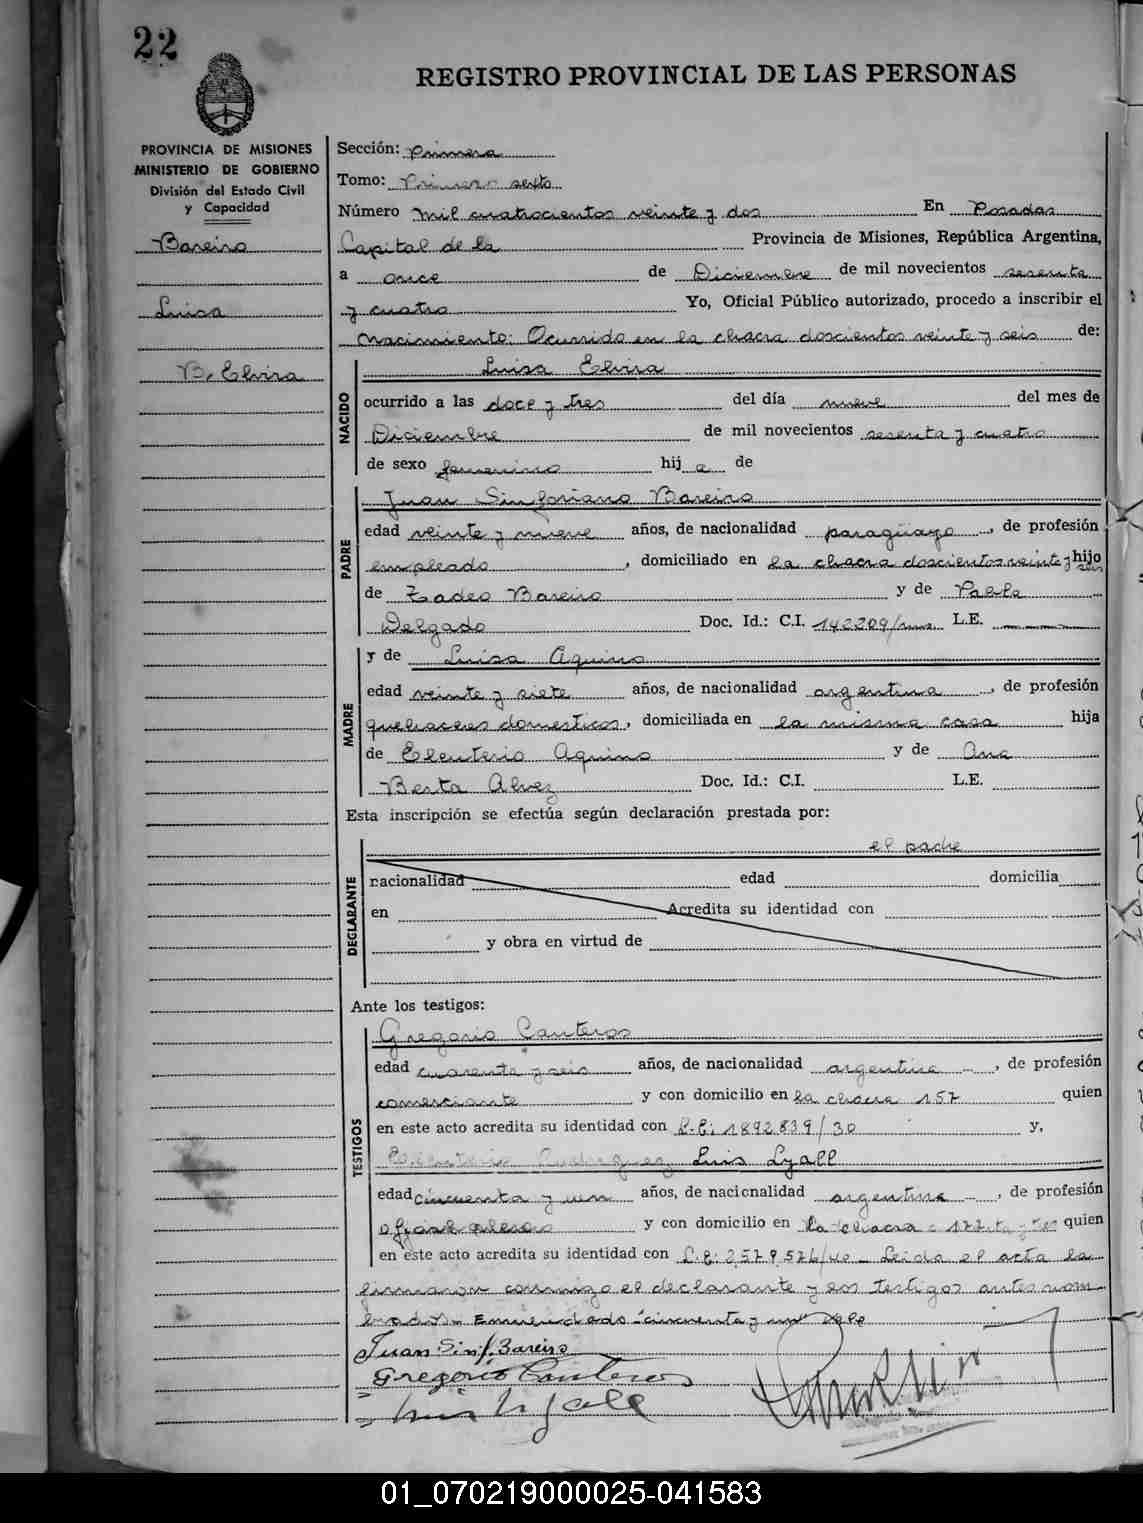 22
REGISTRO PROVINCIAL DE LAS PERSONAS
PROVINCIA DE MISIONES
MINISTERIO DE GOBIERNO
División del Estado Civil
y Capacidad
Bareiro
Luisa
B. Elvira
Sección: Primera
Tomo: Primero sexto
Número mil cuatrocientos veinte y dos En Posadas
Capital de la Provincia de Misiones, República Argentina,
a once de Diciembre de mil novecientos sesenta
y cuatro Yo, Oficial Público autorizado, procedo a inscribir el
nacimiento: Ocurrido en la chacra doscientos veinte y seis de:
NACIDO
Luisa Elvira
ocurrido a las doce y tres del día nueve del mes de
Diciembre de mil novecientos sesenta y cuatro
de sexo femenino hij a de
PADRE
Juan Sinforiano Bareiro
edad veinte y nueve años, de nacionalidad paraguayo, de profesión
empleado, domiciliado en la chacra doscientos veinte y seis hijo
de Tadeo Bareiro y de Pabla
Delgado Doc. Id.: C.I. 142209/mns. L.E.
MADRE
y de Luisa Aquino
edad veinte y siete años, de nacionalidad argentina, de profesión
quehaceres domesticos, domiciliada en la misma casa hija
de Eleuterio Aquino y de Ana
Berta Alvez Doc. Id.: C.I. L.E.
Esta inscripción se efectúa según declaración prestada por:
DECLARANTE
el padre
nacionalidad edad domicilia
en Acredita su identidad con
y obra en virtud de
Ante los testigos:
TESTIGOS
Gregorio Canteros
edad cuarenta y seis años, de nacionalidad argentina, de profesión
comerciante y con domicilio en la chacra 157 quien
en este acto acredita su identidad con L.E: 1892839/30 y,
Luis Lyall
edad cincuenta y un años, de nacionalidad argentina, de profesión
y con domicilio en la chacra 177 quien
en este acto acredita su identidad con L.E: 2579526/40 - Leida el acta la
firmaron conmigo el declarante y los testigos antes nom
brados. - Enmendado "cincuenta y un" vale
Juan Sinf. Bareiro
Gregorio Canteros
Luis Lyall
01_070219000025-041583